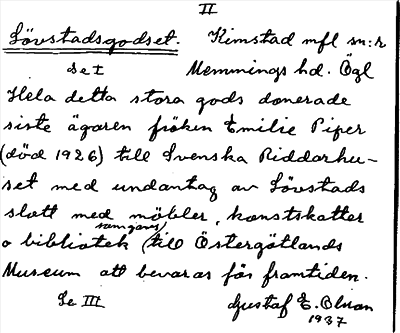 II
Lövstadsgodset. Kimstad mfl sn:r
Se I Memmings hd. Ögl
Hela detta stora gods donerade
siste ägaren fröken Emilie Piper
(död 1926) till Svenska Riddarhu-
set med undantag av Lövstads
slott med möbler, konstskatter
samgavs)
o bibliotek (till Östergötlands
Museum att bevaras för framtiden.
Se III Gustaf E. Olsson
1937